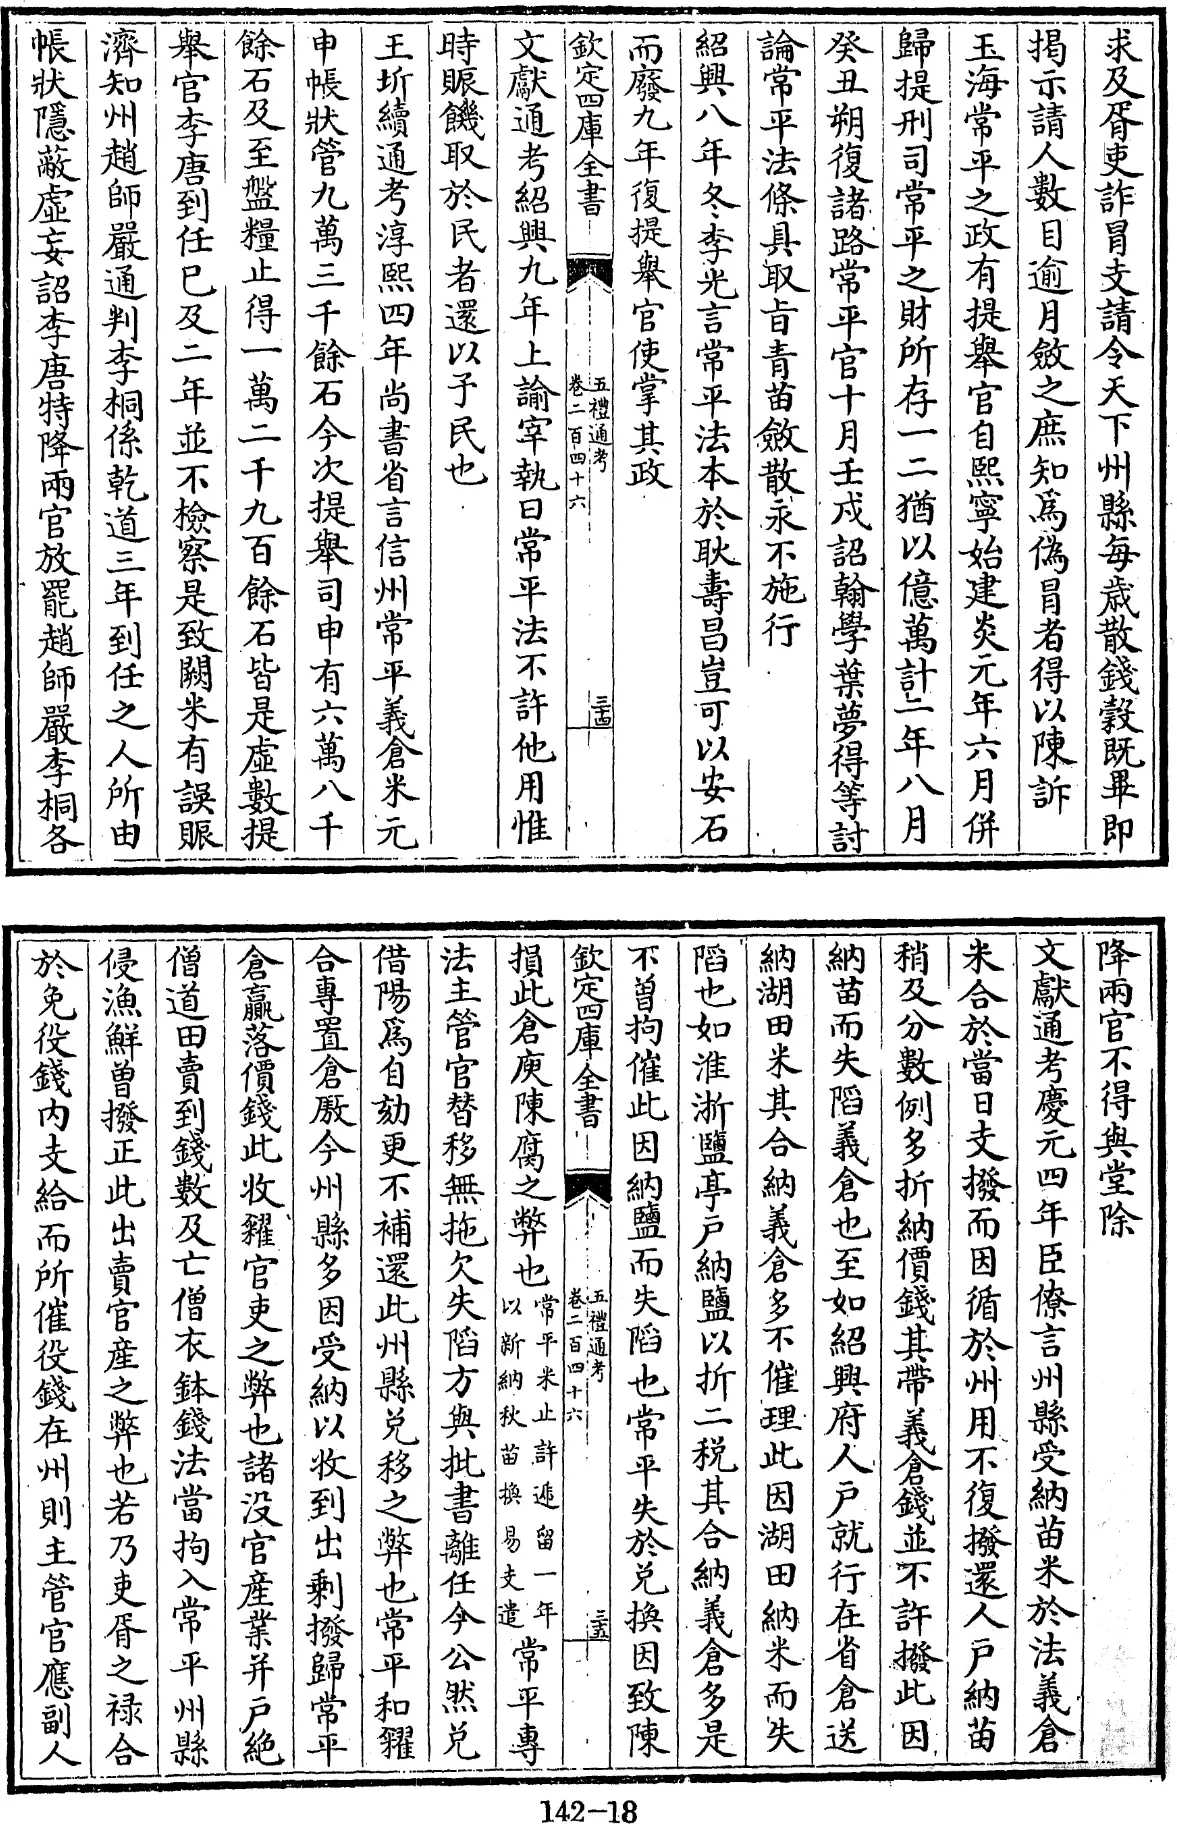 求及胥吏詐冒支請令天下州縣每歲散錢穀既畢即
揭示請人數目逾月斂之庶知爲偽冒者得以陳訴
玉海常平之政有提舉官自熙寧始建炎元年六月併
歸提刑司常平之財所存一二猶以億萬計二年八月
癸丑朔復諸路常平官十月壬戌詔翰學葉夢得等討
論常平法條具取旨青苗斂散永不施行
紹興八年冬李光言常平法本於耿壽昌豈可以安石
而廢九年復提舉官使掌其政
欽定四庫全書
五禮通考
卷二百四十六
三十四
文獻通考紹興九年上諭宰執曰常平法不許他用惟
時賑饑取於民者還以予民也
王圻續通考淳熙四年尚書省言信州常平義倉米元
申帳狀管九萬三千餘石今次提舉司申有六萬八千
餘石及至盤糧止得一萬二千九百餘石皆是虛數提
舉官李唐到任已及二年並不檢察是致闕米有誤賑
濟知州趙師嚴通判李桐係乾道三年到任之人所由
帳狀隱蔽虛妄詔李唐特降兩官放罷趙師嚴李桐各
降兩官不得與堂除
文獻通考慶元四年臣僚言州縣受納苗米於法義倉
米合於當日支撥而因循於州用不復撥還人戶納苗
稍及分數例多折納價錢其帶義倉錢並不許撥此因
納苗而失陷義倉也至如紹興府人戶就行在省倉送
納湖田米其合納義倉多不催理此因湖田納米而失
陷也如淮浙鹽亭戶納鹽以折二税其合納義倉多是
不曽拘催此因納鹽而失陷也常平失於兑換因致陳
欽定四庫全書
五禮通考
卷二百四十六
三十五
損此倉庾陳腐之弊也常平米止許逓留一年以新納秋苗換易支遣常平專
法主管官替移無拖欠失陷方與批書離任今公然兑
借陽爲自劾更不補還此州縣兑移之弊也常平和糴
合專置倉厫今州縣多因受納以收到出剩撥歸常平
倉贏落價錢此收糴官吏之弊也諸没官産業并戶絶
僧道田賣到錢數及亡僧衣鉢錢法當拘入常平州縣
侵漁鮮曽撥正此出賣官産之弊也若乃吏胥之禄合
於免役錢内支給而所催役錢在州則主管官應副人
142-18